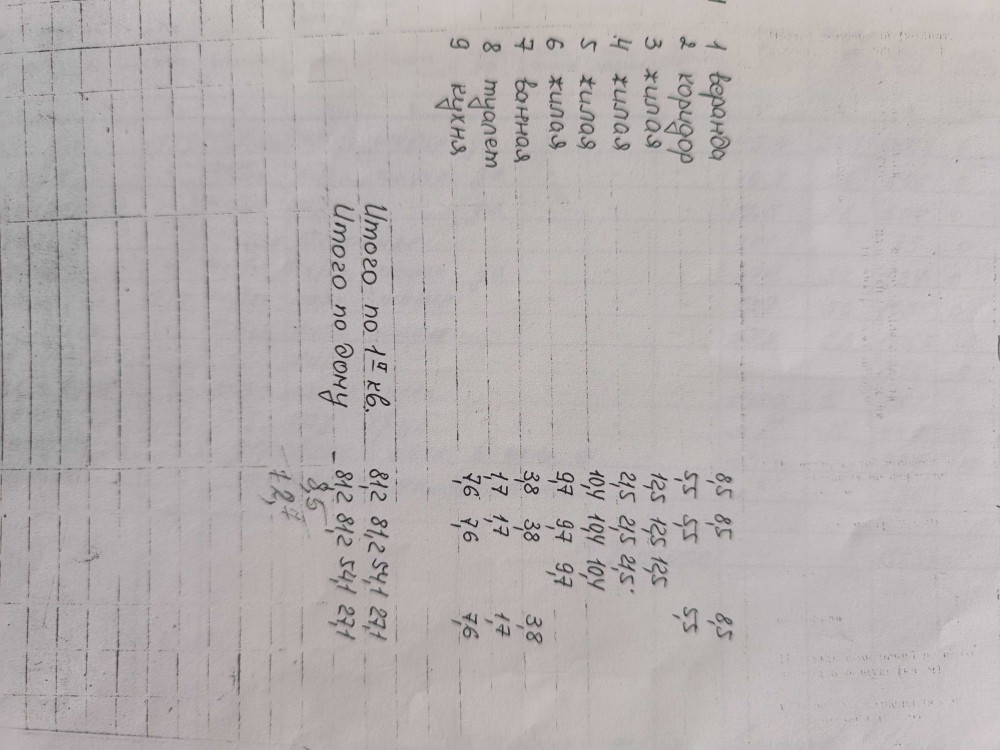 1 веранда 8,5 8,5 8,5
2 коридор 5,5 5,5 5,5
3 жилая 12,5 12,5 12,5
4 жилая 21,5 21,5 21,5
5 жилая 10,4 10,4 10,4
6 жилая 9,7 9,7 9,7
7 ванная 3,8 3,8 3,8
8 туалет 1,7 1,7 1,7
9 кухня 7,6 7,6 7,6
Итого по 1й кв. 81,2 81,2 54,1 27,1
Итого по дому – 81,2 81,2 54,1 27,1
8,5
72,7